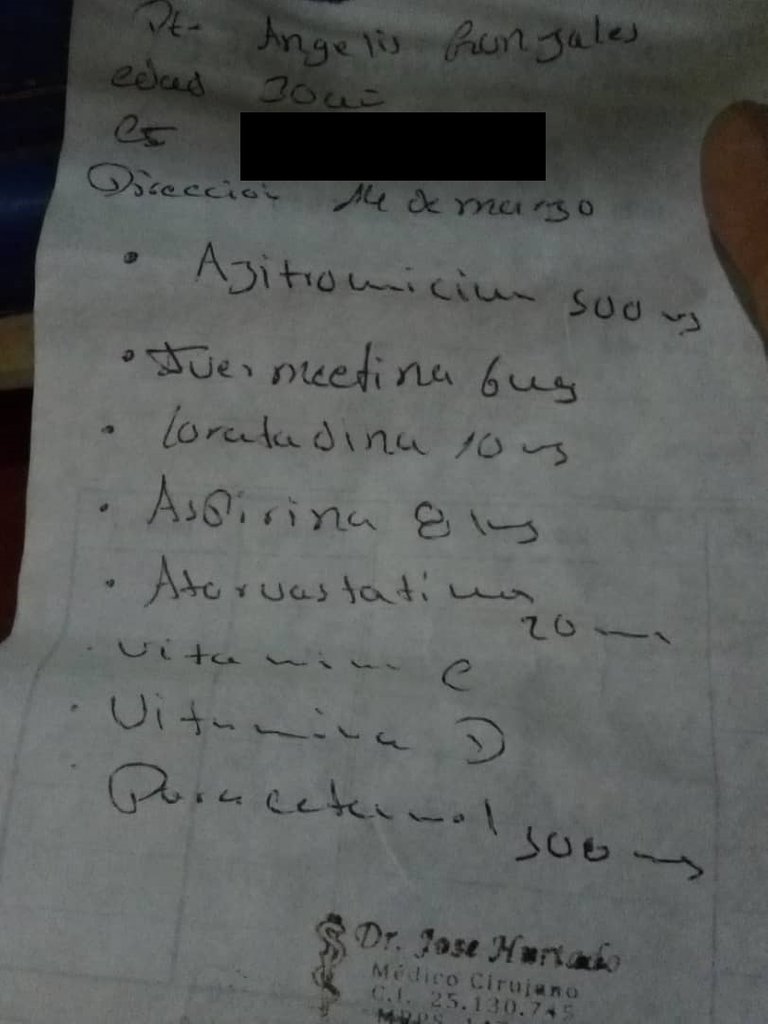 Pt- Angelis Gonzales
edad 30
CI
Dirección 14 de marzo
• Azitromicina 500 mg
• Ivermectina 6mg
• Loratadina 10 mg
• Aspirina 81mg
• Atorvastatina
20 m
vitamina C
• Vitamina D
Paracetamol 500 mg
Dr. Jose Hurtado
Médico Cirujano
C.I. 25.130.745
MPPS